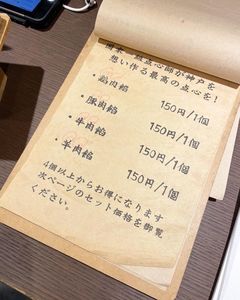 点心師が神戸を
想い作る最高の点心を！
・鶏肉餡 150円/1個
・豚肉餡 150円/1個
・牛肉餡 150円/1個
・羊肉餡 150円/1個
4個以上からお得になります
次ページのセット価格を御覧
ください。